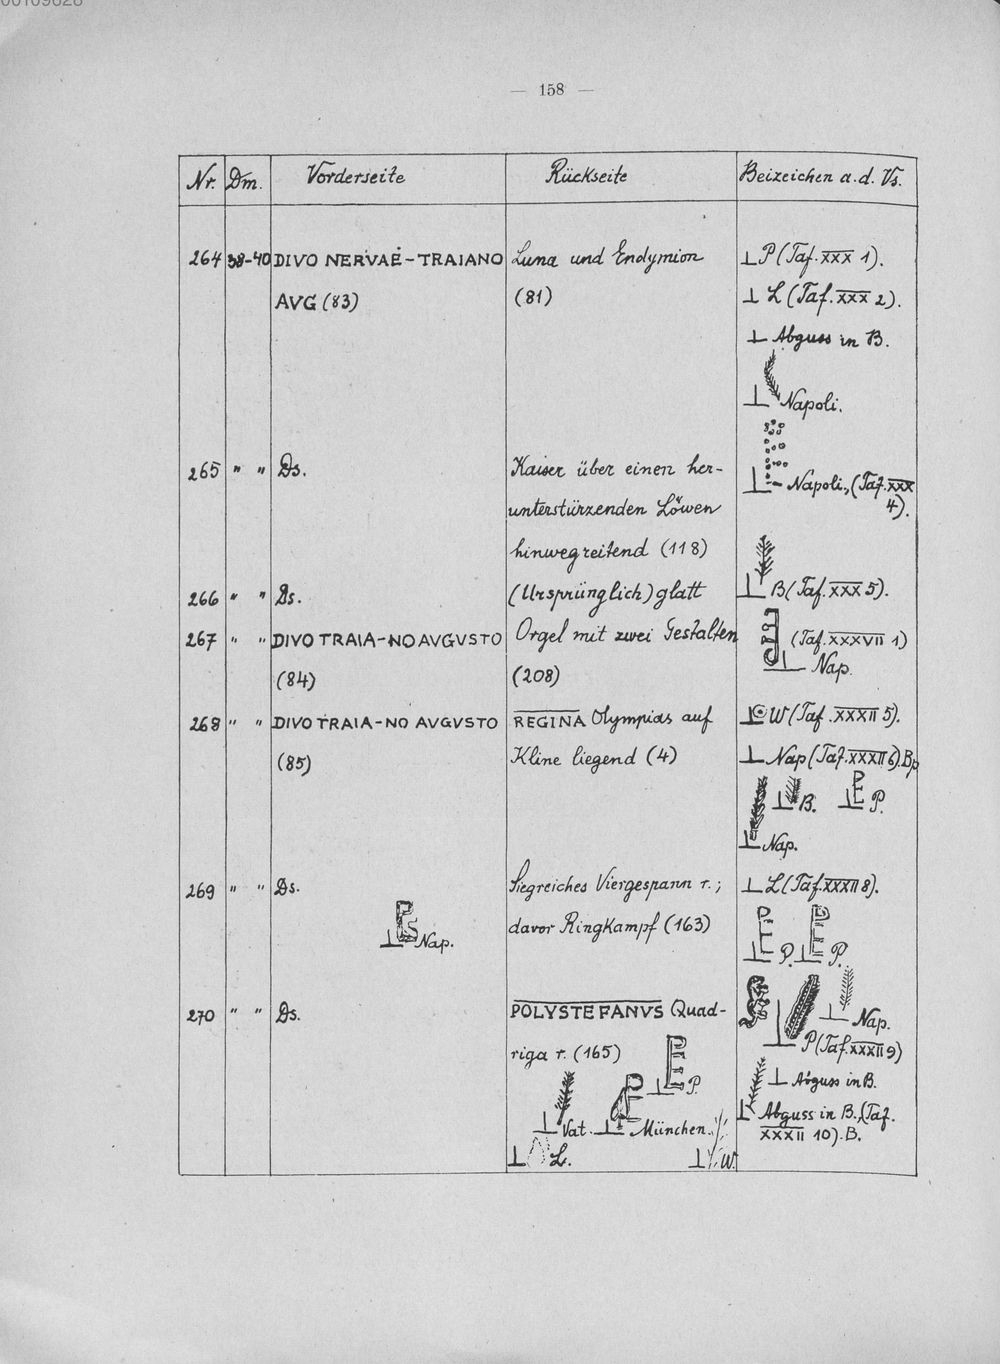 00109628
— 158 —
Nr. Dm. Vorderseite Rückseite Beizeichen a. d. Vs.
264 38-40 DIVO NERVAE – TRAIANO Luna und Endymion ⊥ P (Taf. XXX 1).
AVG (83) (81) ⊥ L (Taf. XXX 2).
⊥ Abguss in B.
⊥ Napoli.
265 " " Ds. Kaiser über einen her-
⊥ Napoli, (Taf. XXX
4).
unterstürzenden Löwen
hinwegreitend (118)
266 " " Ds. (Ursprünglich) glatt ⊥ B (Taf. XXX 5).
267 " " DIVO TRAIA – NO AVGVSTO Orgel mit zwei Gestalten (Taf. XXXVII 1)
(84) (208) ⊥ Nap.
268 " " DIVO TRAIA – NO AVGVSTO REGINA Olympias auf ⊥ W (Taf. XXXII 5).
(85) Kline liegend (4) ⊥ Nap (Taf. XXXII 6). Bp
⊥ B. ⊥ P.
⊥ Nap.
269 " " Ds. Siegreiches Viergespann r.; ⊥ L (Taf. XXXII 8).
⊥ Nap. davor Ringkampf (163)
⊥ P. ⊥ P.
270 " " Ds. POLYSTEFANVS Quad-
⊥ Nap.
riga r. (165) ⊥ P (Taf. XXXII 9)
⊥ P. ⊥ Abguss in B.
⊥ Vat. ⊥ München. ⊥ Abguss in B., (Taf.
XXXII 10). B.
⊥ L. ⊥ W.